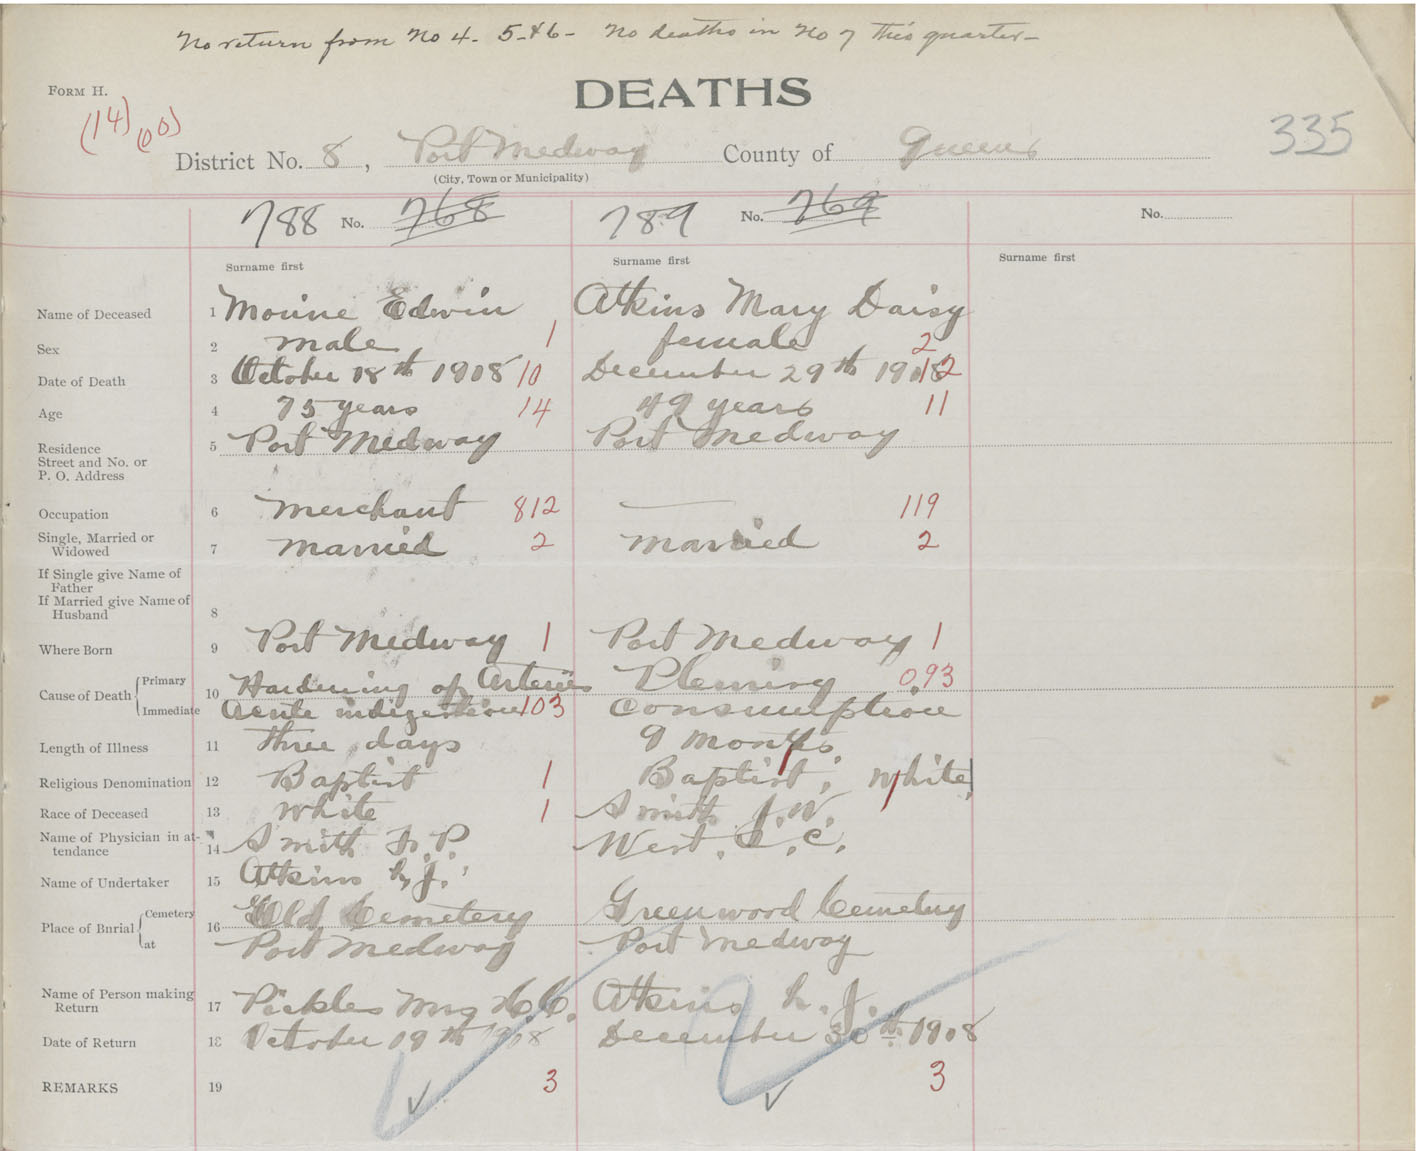 No return from No 4. 5 & 6 - No deaths in No 7 this quarter -
FORM H.
DEATHS
(14) (00)
335
District No. 8, Port Medway County of Queens
(City, Town or Municipality)
788 No. 768 789 No. 769 No.
Surname first Surname first Surname first
Name of Deceased 1 Edwin Atkins Mary Daisy
Sex 2 male 1 female 2
Date of Death 3 October 18th 1908 10 December 29th 1908 12
Age 4 75 years 14 49 years 11
Residence 5 Port Medway Port Medway
Street and No. or
P. O. Address
Occupation 6 Merchant 812 — 119
Single, Married or
Widowed 7 married 2 married 2
If Single give Name of
Father
If Married give Name of
Husband 8
Where Born 9 Port Medway 1 Port Medway 1
Cause of Death Primary 10 Hardening of Arteries Pleurisy 093
Immediate Acute indigestion 103 Consumption
Length of Illness 11 three days 9 months
Religious Denomination 12 Baptist 1 Baptist, white
Race of Deceased 13 White 1 Smith J. W.
Name of Physician in at-
tendance 14 Smith F. P. West. C. C.
Name of Undertaker 15 Atkins J.
Place of Burial Cemetery 16 Old Cemetery Greenwood Cemetery
at Port Medway Port Medway
Name of Person making
Return 17 Pickles Atkins J.
Date of Return 18 October 19th 1908 December 30th 1908
REMARKS 19 3 3